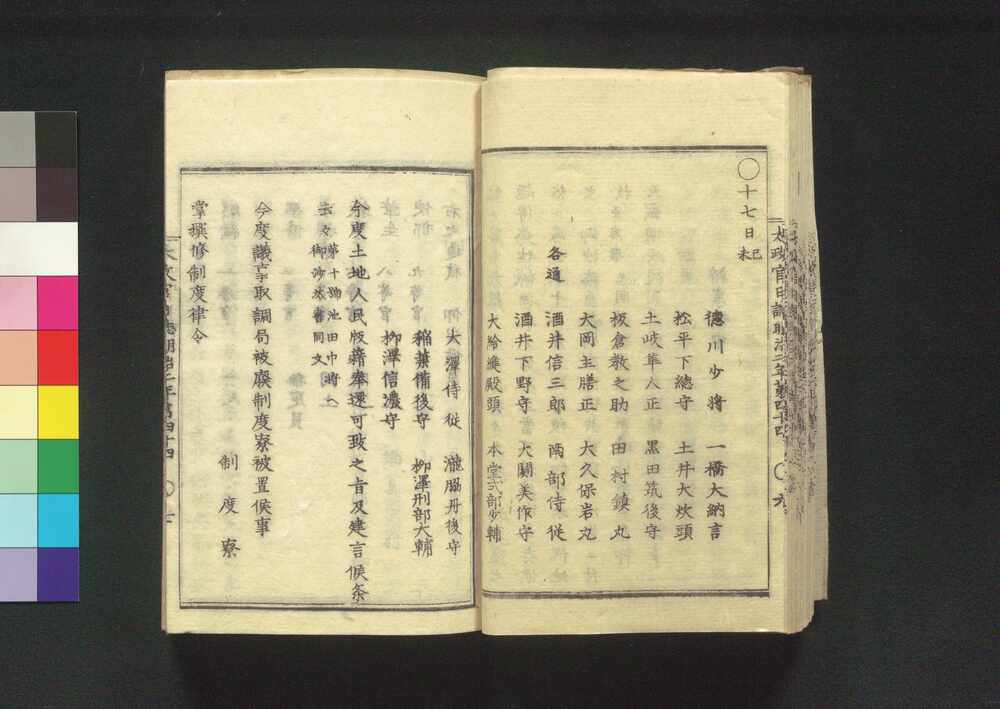 太政官日誌明治二年第四十四 〇九
〇十七日己未
徳川少将 一橋大納言
松平下總守 土井大炊頭
土岐隼人正 黒田筑後守
板倉教之助 田村鎮丸
大岡主膳正 大久保岩丸
各通 酒井信三郎 南部侍従
酒井下野守 大関美作守
大給縫殿頭 本堂式部少輔
大澤侍従 瀧脇丹後守
稲葉備後守 柳澤刑部大輔
柳澤信濃守
今度土地人民版籍奉還可致之旨及建言候条
云々第十號池田中將ヘ
御沙汰書同文
今度議事取調局被廢制度寮被置候事
制度寮
掌撰修制度律令
太政官日誌明治二年第四十四 〇十